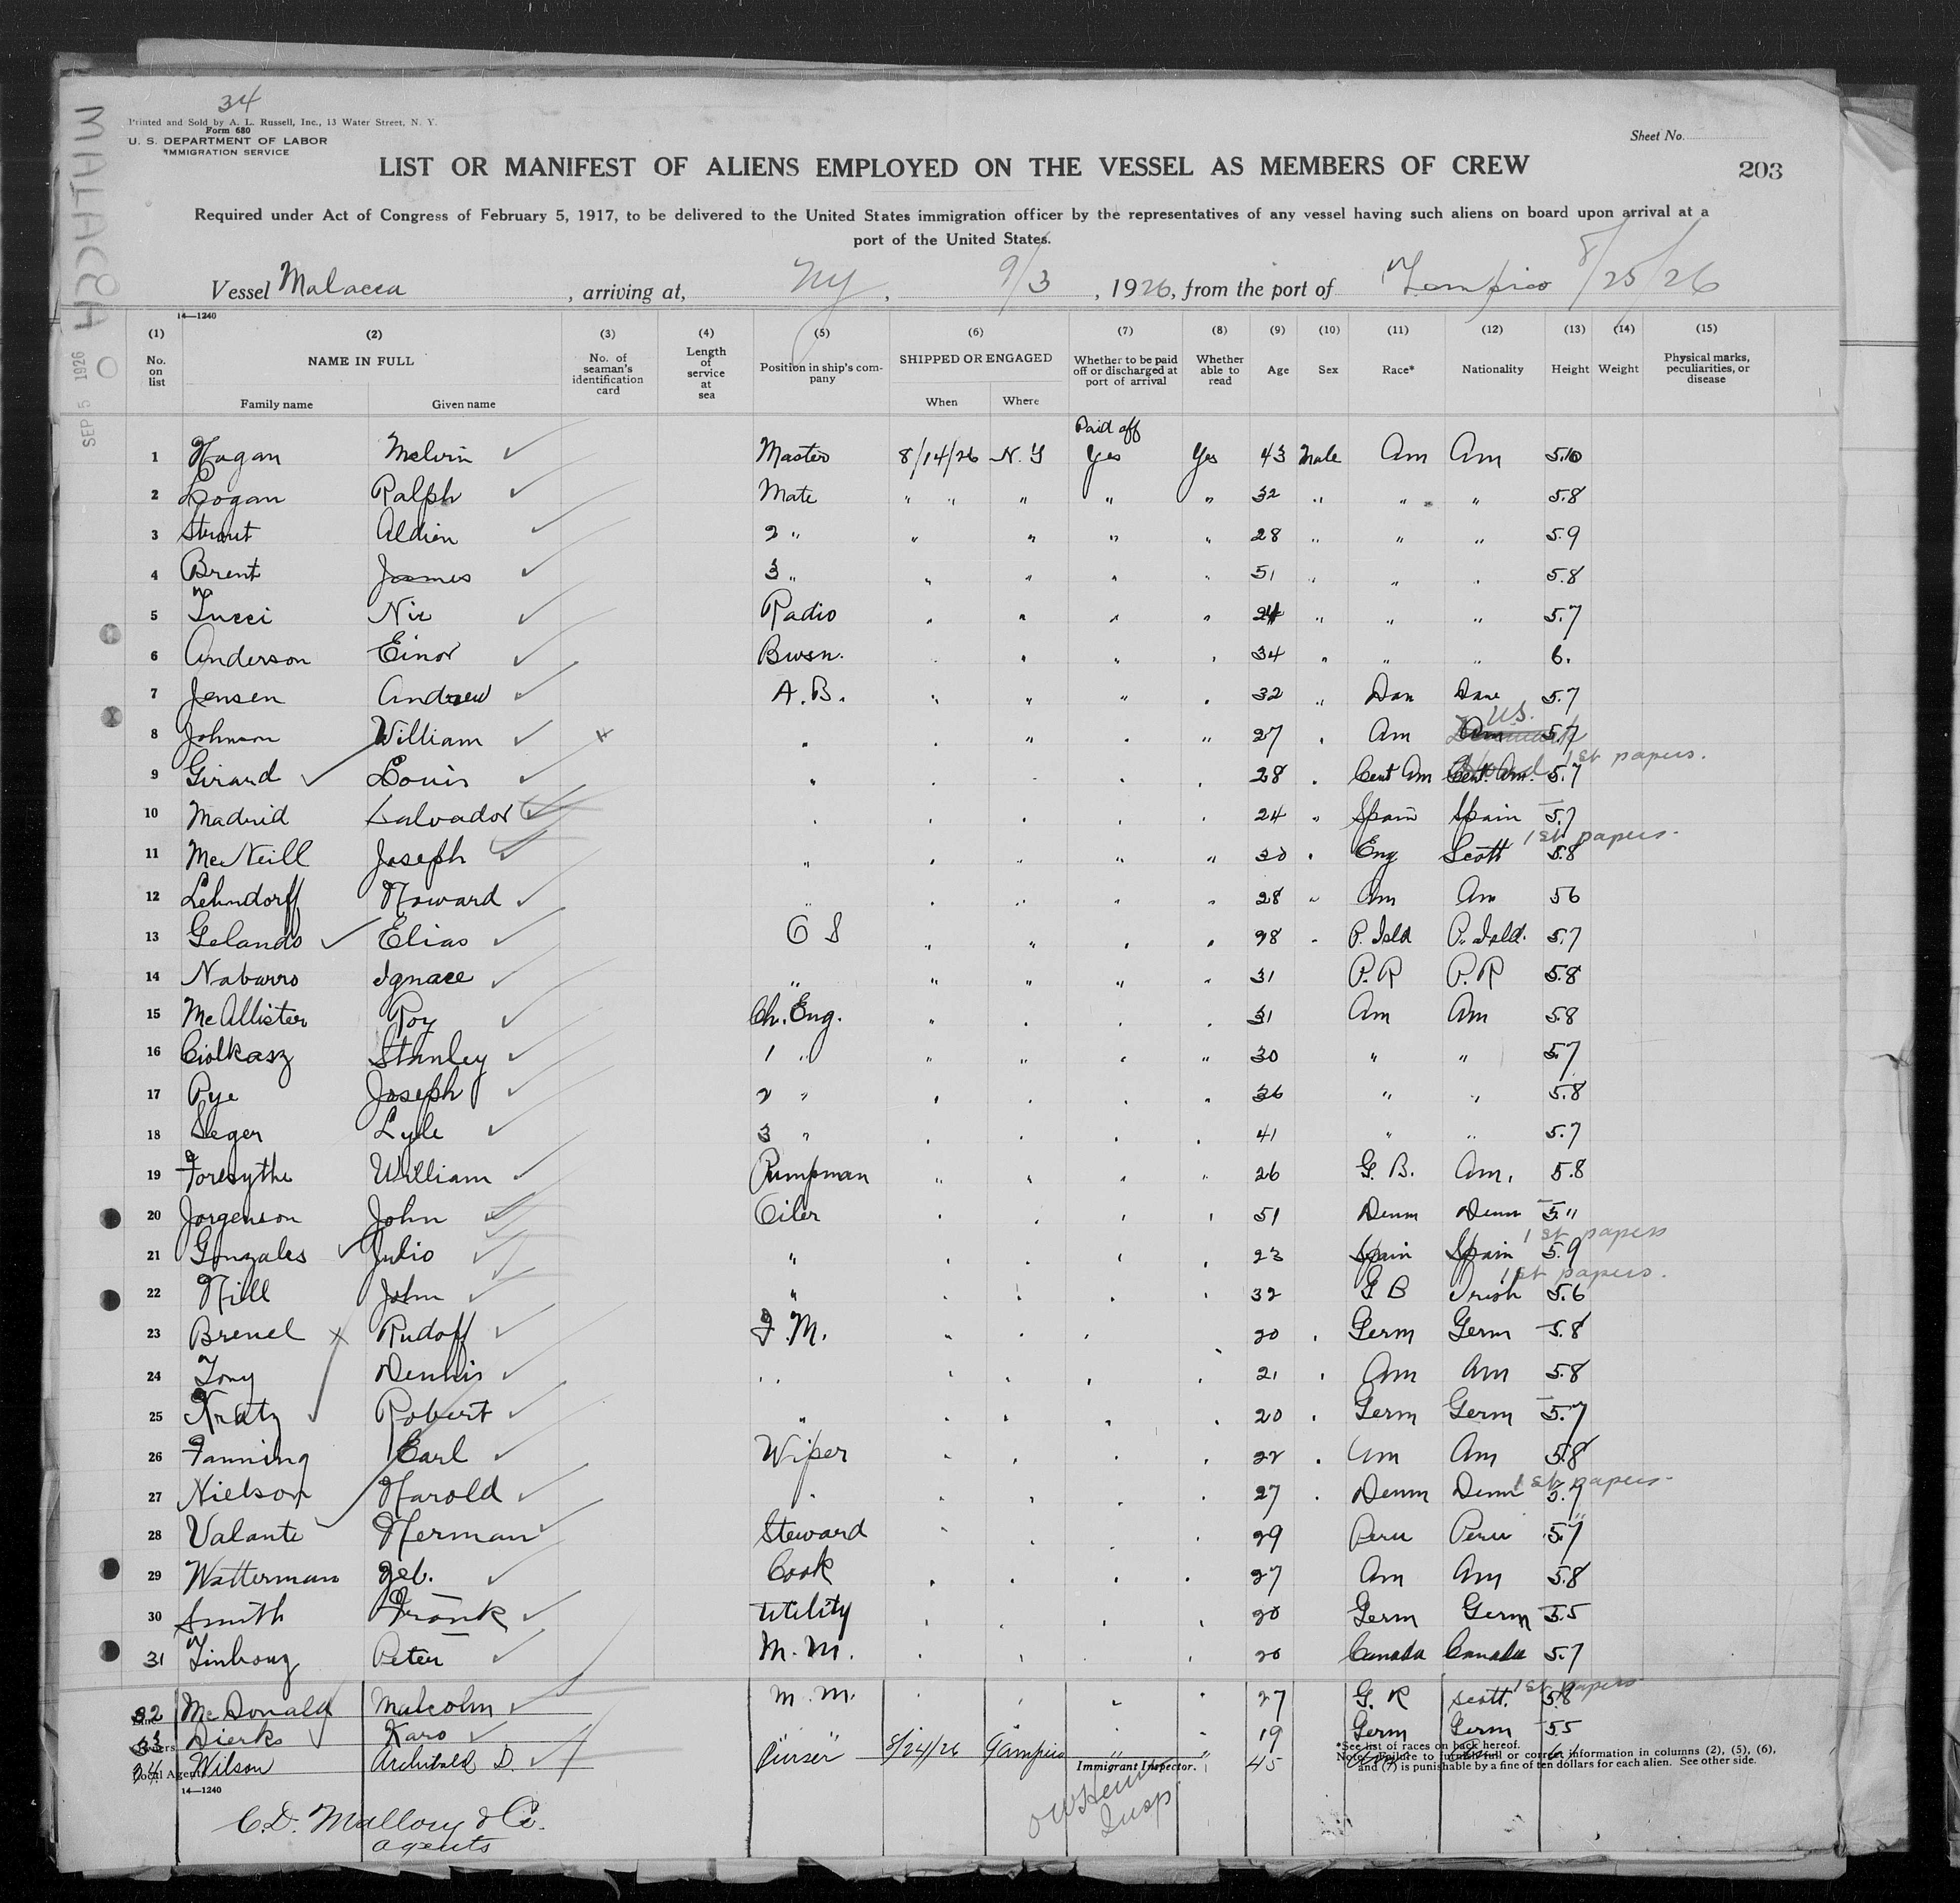 34
Printed and Sold by A. L. Russell, Inc., 13 Water Street, N. Y.
Form 680
U. S. DEPARTMENT OF LABOR
IMMIGRATION SERVICE
Sheet No.
MALACCA
SEP 5 1926
LIST OR MANIFEST OF ALIENS EMPLOYED ON THE VESSEL AS MEMBERS OF CREW
203
Required under Act of Congress of February 5, 1917, to be delivered to the United States immigration officer by the representatives of any vessel having such aliens on board upon arrival at a
port of the United States.
Vessel Malacca, arriving at, NY, 9/3, 1926, from the port of Tampico 8/25/26
14—1240
(1) (2) (3) (4) (5) (6) (7) (8) (9) (10) (11) (12) (13) (14) (15)
No. on list NAME IN FULL No. of seaman's identification card Length of service at sea Position in ship's company SHIPPED OR ENGAGED Whether to be paid off or discharged at port of arrival Whether able to read Age Sex Race* Nationality Height Weight Physical marks, peculiarities, or disease
Family name Given name When Where
Paid off
1 Hagan Melvin Master 8/14/26 N.Y Yes Yes 43 Male Am Am 5.10
2 Logan Ralph Mate " " " " " 32 " " " 5.8
3 Strout Aldien 2 " " " " " 28 " " " 5.9
4 Brent James 3 " " " " " 51 " " " 5.8
5 Tucci Nic Radio " " " " 24 " " " 5.7
6 Anderson Einor Bwsn. " " " 34 " " " 6.
7 Jensen Andrew A.B. " " " " 32 " Dan Dane 5.7
8 Johnson William " " " " " 27 " Am U.S. 5.7
9 Girard Louis " " " " 28 " Cent Am Cent. Am. 5.7 1st papers.
10 Madrid Salvador " " " " 24 " Spain Spain 5.7
11 McNeill Joseph " " " " " 30 " Eng Scott 5.8 1st papers.
12 Lehndorff Howard " " " " " 28 " Am Am 56
13 Gelando Elias O S " " " " 28 " P. Isld P. Isld. 5.7
14 Nabarro Ignace " " " " " 31 P.R P.R 5.8
15 McAllister Roy Ch. Eng. " " " " 31 Am Am 58
16 Ciolkasz Stanley 1 " " " " " 30 " " 5.7
17 Pye Joseph 2 " " " " " 36 " " 5.8
18 Seger Lyle 3 " " " " " 41 " " 5.7
19 Forsythe William Pumpman " " " " 26 G.B. Am. 5.8
20 Jorgenson John Oiler " " " " 51 Denm Denm 5."
21 Gonzales Julio " " " " " 23 Spain Spain 5.9 1st papers
22 Hill John " " " " " 32 G B Irish 5.6 1st papers.
23 Brenel Rudoff F.M. " " " " 20 " Germ Germ 5.8
24 Tony Dennis " " " " " 21 " Am Am 5.8
25 Kratz Robert " " " " " 20 " Germ Germ 5.7
26 Fanning Earl Wiper " " " 22 " Am Am 5.8
27 Nielson Harold " " " " " 27 " Denm Denm 5.7 1st papers.
28 Valante Herman Steward " " " 29 Peru Peru 5.7
29 Watterman Geb. Cook " " " " 27 Am Am 5.8
30 Smith Frank Utility " " " " 20 Germ Germ 5.5
31 Peter M.M. " " " 20 Canada Canada 5.7
32 McDonald Malcolm M.M. " " " " 27 Scott. 5.8 1st papers
33 Dierks Karo " " 19 Germ Germ 55
34 Wilson Archibald D. 8/24/26 Tampico " " 45
*See list of races on back hereof.
Note.—Failure to furnish full or correct information in columns (2), (5), (6),
and (7) is punishable by a fine of ten dollars for each alien. See other side.
Immigrant Inspector.
Local Agents
14—1240
C.D. Mallory & Co.
agents
Insp